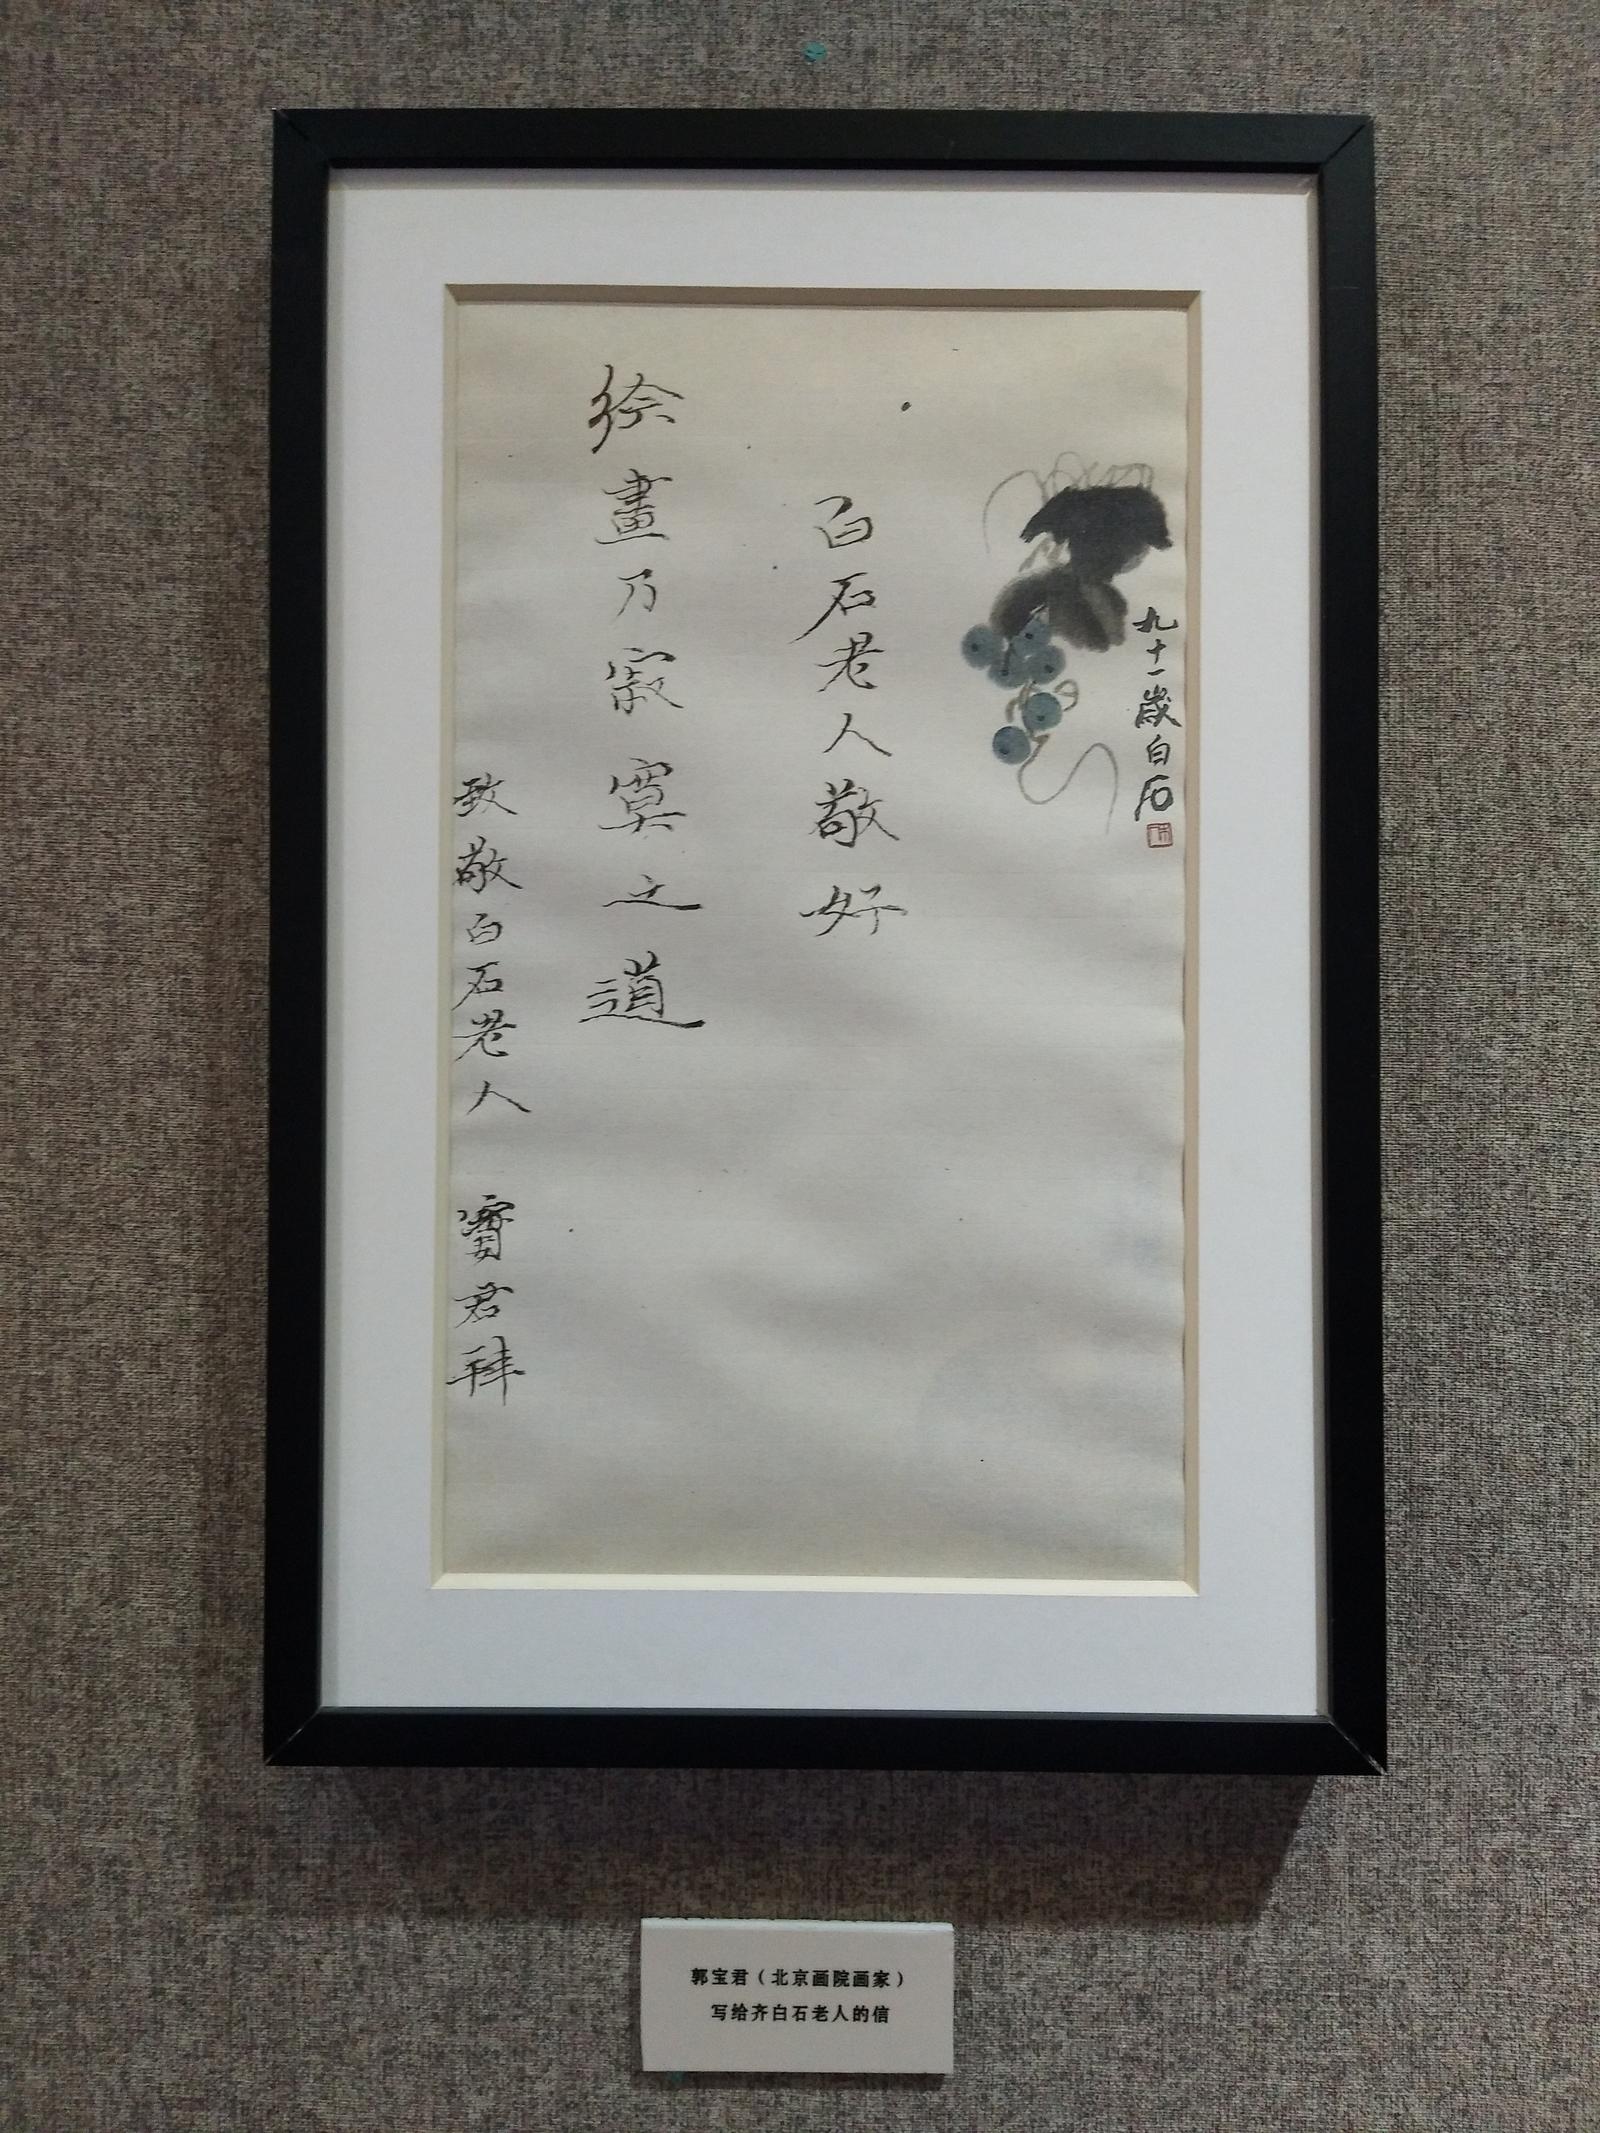 九十一歲白石
白石老人敬好
绘畫乃寂寞之道
致敬白石老人 寶君拜
郭宝君（北京画院画家）
写给齐白石老人的信